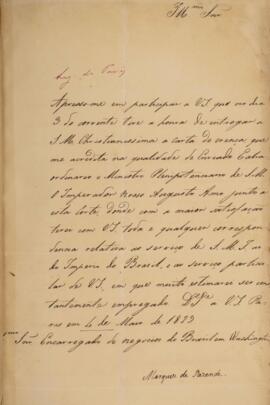 Ill.mo Snr.
Apresso-me em participar a VS. que no dia
3 do corrente tive a honra de entregar a
S. M. Christianissima a carta de crença, que
me acredita na qualidade de Enviado Extra
ordinario e Ministro Plenipotenciario de S. M.
O Imperador Nosso Augusto Amo junto a
esta Corte, donde com a maior satisfação
terei com VS. toda e qualquer correspon
dencia relativa ao serviço de S. M. I. ou
do Imperio do Brasil, e ao serviço particu
lar de VS., em que muito estimarei ser cons
tantemente empregado. Ds. Ge. a VS. Pa
ris em 4 de Maio de
Snr. Encarregado de negocios do Brasil em Washington
Marquez de Rezende.